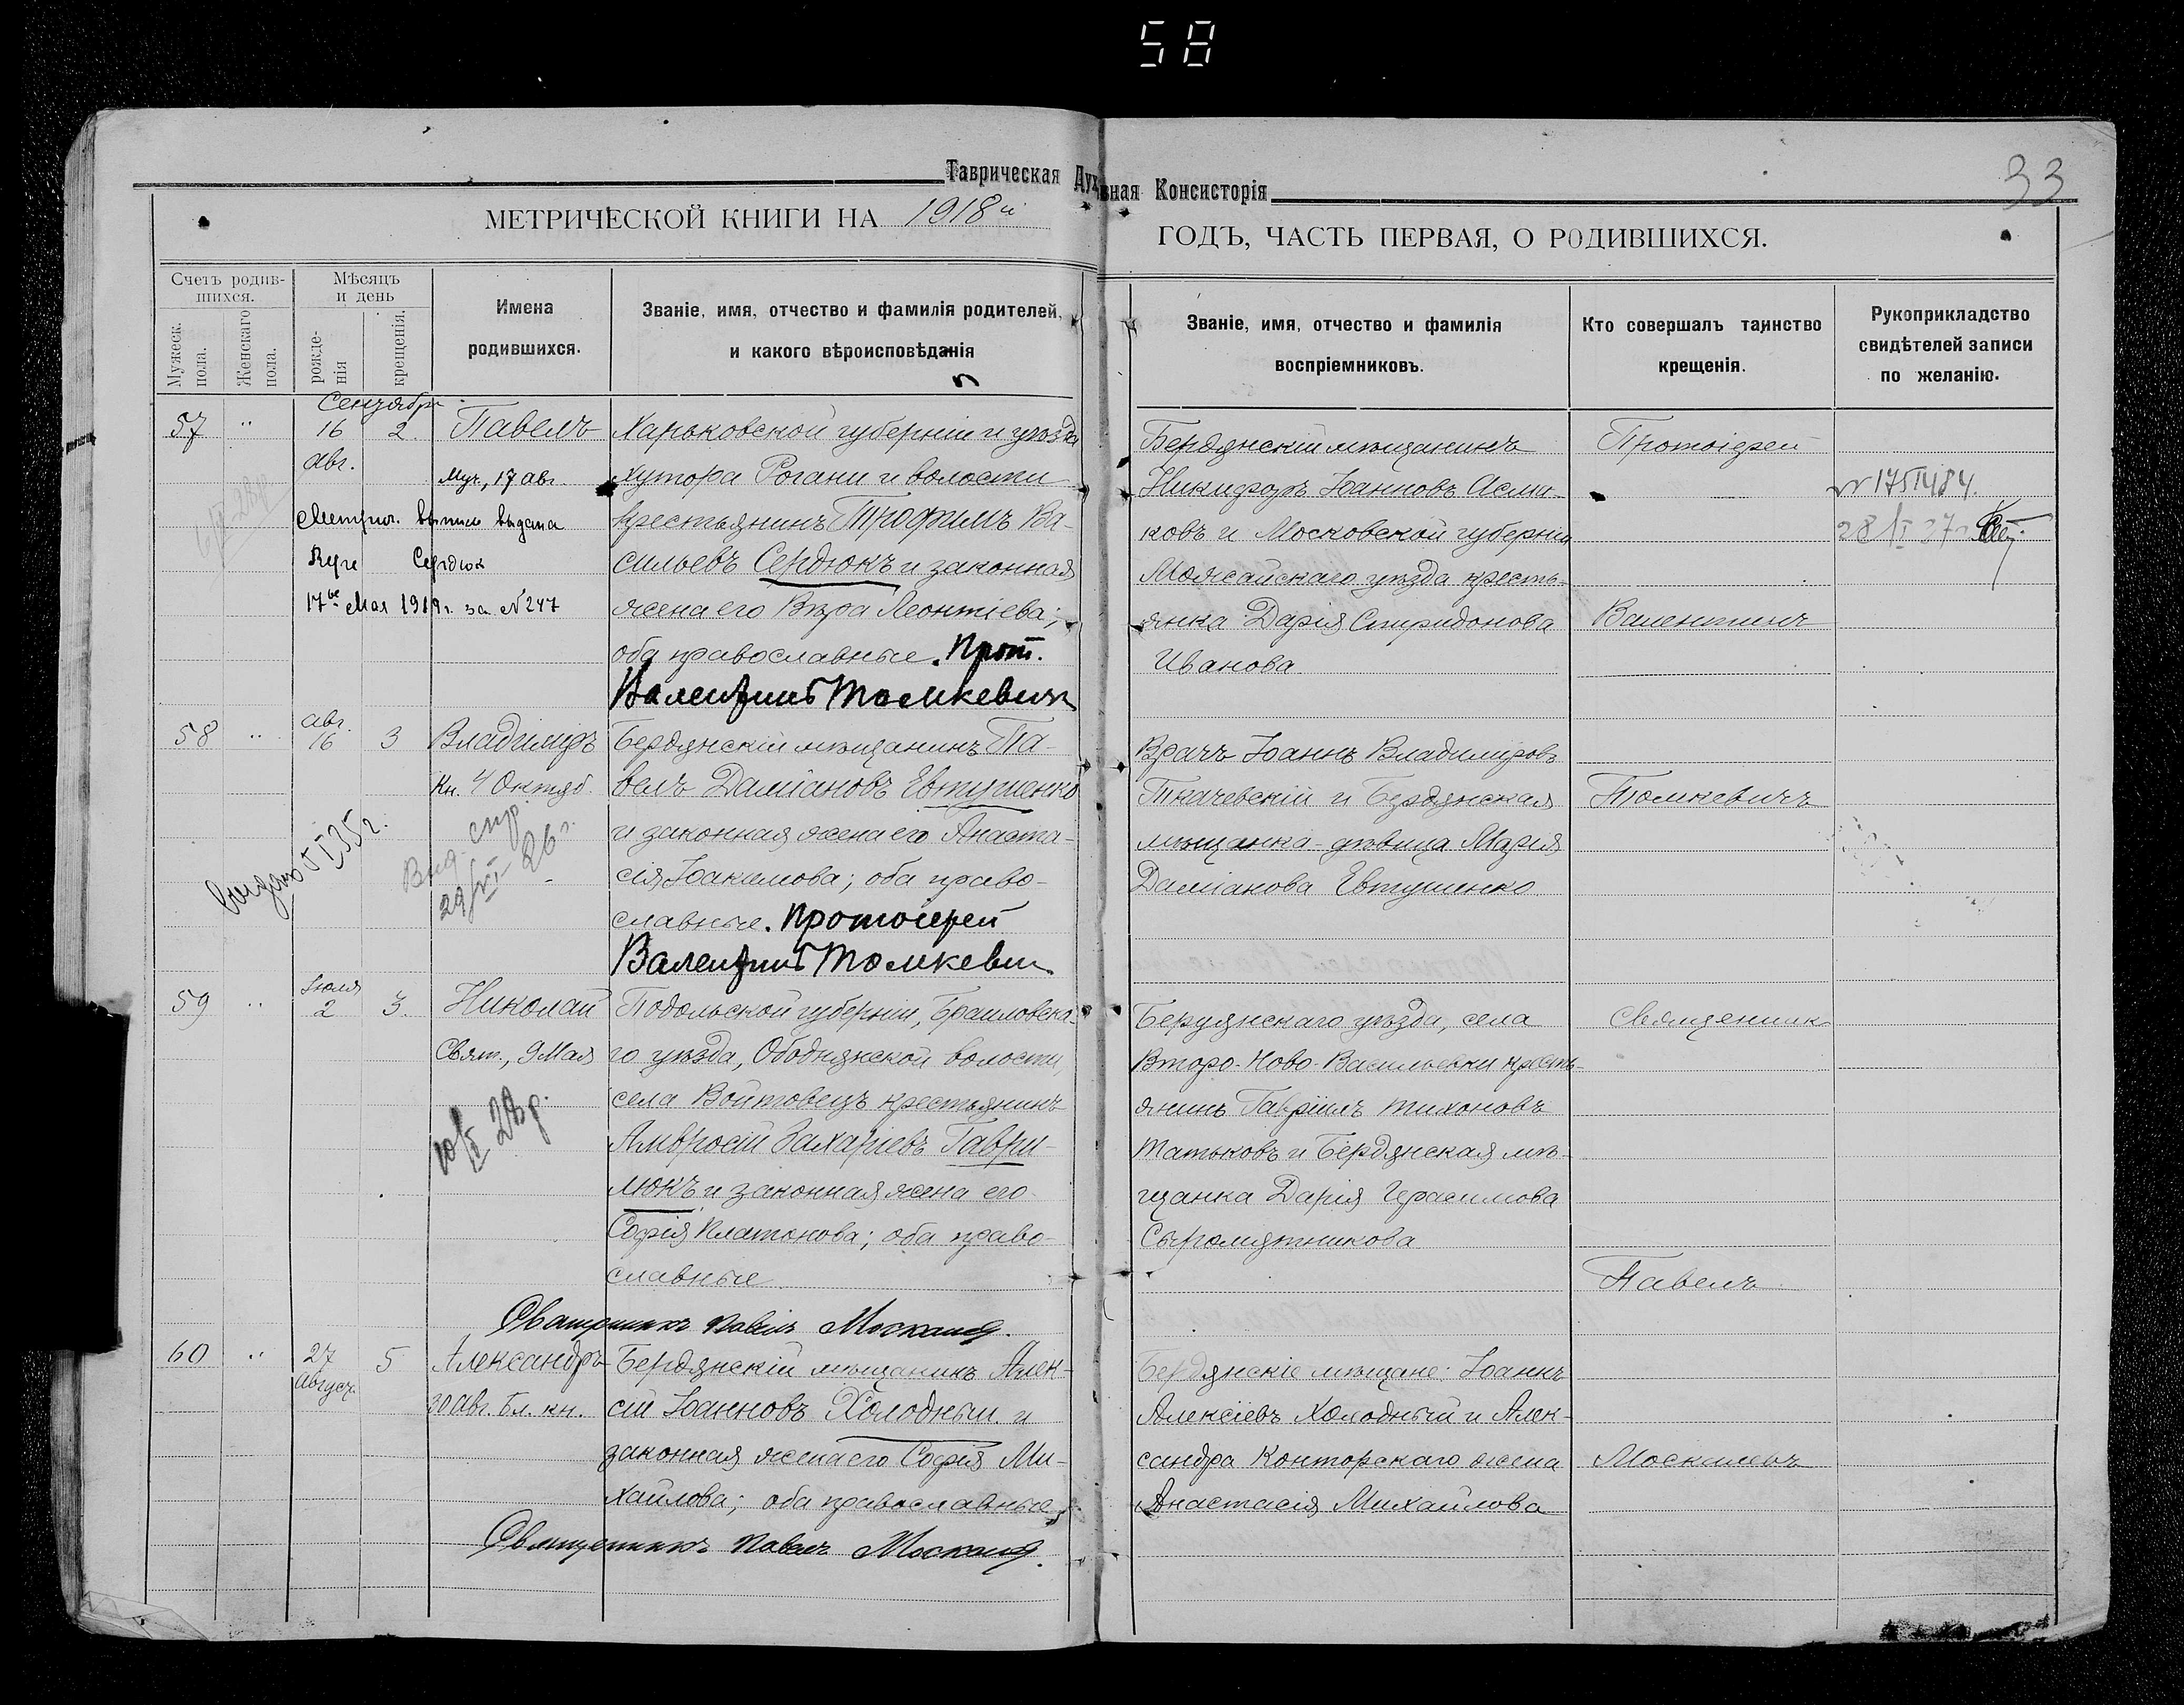 58
Таврическая Духовная Консисторія
33
МЕТРИЧЕСКОЙ КНИГИ НА 1918й
ГОДЪ, ЧАСТЬ ПЕРВАЯ, О РОДИВШИХСЯ.
Счетъ родив-
шихся.
Мужеск. пола.
Женскаго пола.
Мѣсяцъ
и день
рожде-
нія
крещенія.
Имена
родившихся.
Званіе, имя, отчество и фамилія родителей,
и какого вѣроисповѣданія
Званіе, имя, отчество и фамилія
воспріемниковъ.
Кто совершалъ таинство
крещенія.
Рукоприкладство
свидѣтелей записи
по желанію.
Сентябрь
57 " 16 2. Павелъ
авг.
Муч., 17 авг.
Метрич. выпись выдана
Сердюк
17го Мая 1919г. за №247
Харьковской губерніи и уѣзда
хутора Рогани и волости
крестьянинъ Трофимъ Ва-
сильевъ Сердюкъ и законная
жена его Вѣра Леонтіева;
оба православные. Прот.
Валентинъ Томкевичъ
Бердянскій мѣщанинъ
Никифоръ Іоанновъ Асма-
ковъ и Московской губерніи
Можайскаго уѣзда кресть-
янка Дарія Спиридонова
Иванова
Протоіерей
Валентинъ
58 " авг. 16 3 Владиміръ
Кн. 4 Октяб.
Выд. спр.
29/VI 26г.
Бердянскій мѣщанинъ Па-
велъ Даміановъ Евтушенко
и законная жена его Анаста-
сія Іоакимова; оба право-
славные. Протоіерей
Валентинъ Томкевич
Врачъ Іоаннъ Владиміровъ
Ткачевскій и Бердянская
мѣщанка-дѣвица Марія
Даміанова Евтушенко
Томкевичъ
59 " Іюля 2 3. Николай
Свят., 9 Мая
Подольской губерніи, Браиловска-
го уѣзда, Ободнянской волости,
села Войтовецъ крестьянинъ
Амвросій Захаріевъ Гаври-
люкъ и законная жена его
Софія Платонова; оба право-
славные
Священникъ Павелъ
Бердянскаго уѣзда, села
Второ-Ново-Васильевки кресть-
янинъ Гавріилъ Тихоновъ
Татьковъ и Бердянская мѣ-
щанка Дарія Герасимова
Сыромятникова
Священникъ
Павелъ
60 " 27 5 Александръ
Август.
30 авг. Бл. кн.
Бердянскій мѣщанинъ Алек-
сій Іоанновъ Холодный и
законная жена его Софія Ми-
хайлова; оба православные
Священникъ Павелъ
Бердянскіе мѣщане: Іоаннъ
Алексіевъ Холодный и Алек-
сандра Конторскаго жена
Анастасія Михайлова